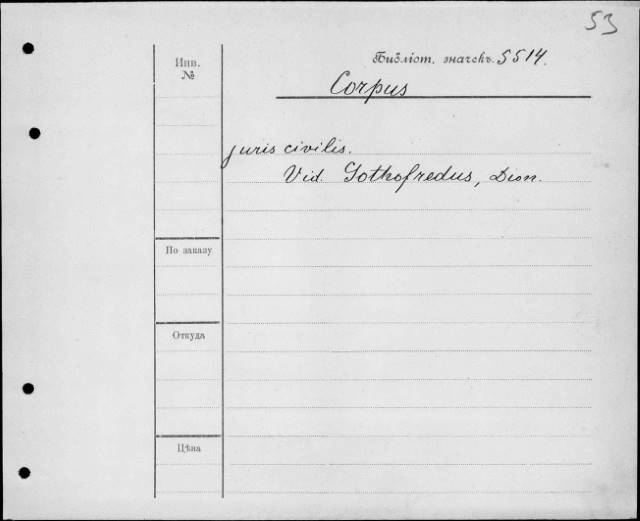 53
Инв.
№
Библіот. значекъ. 5514.
Corpus
juris civilis.
Vid. Gothofredus, Dion.
По заказу
Откуда
Цѣна